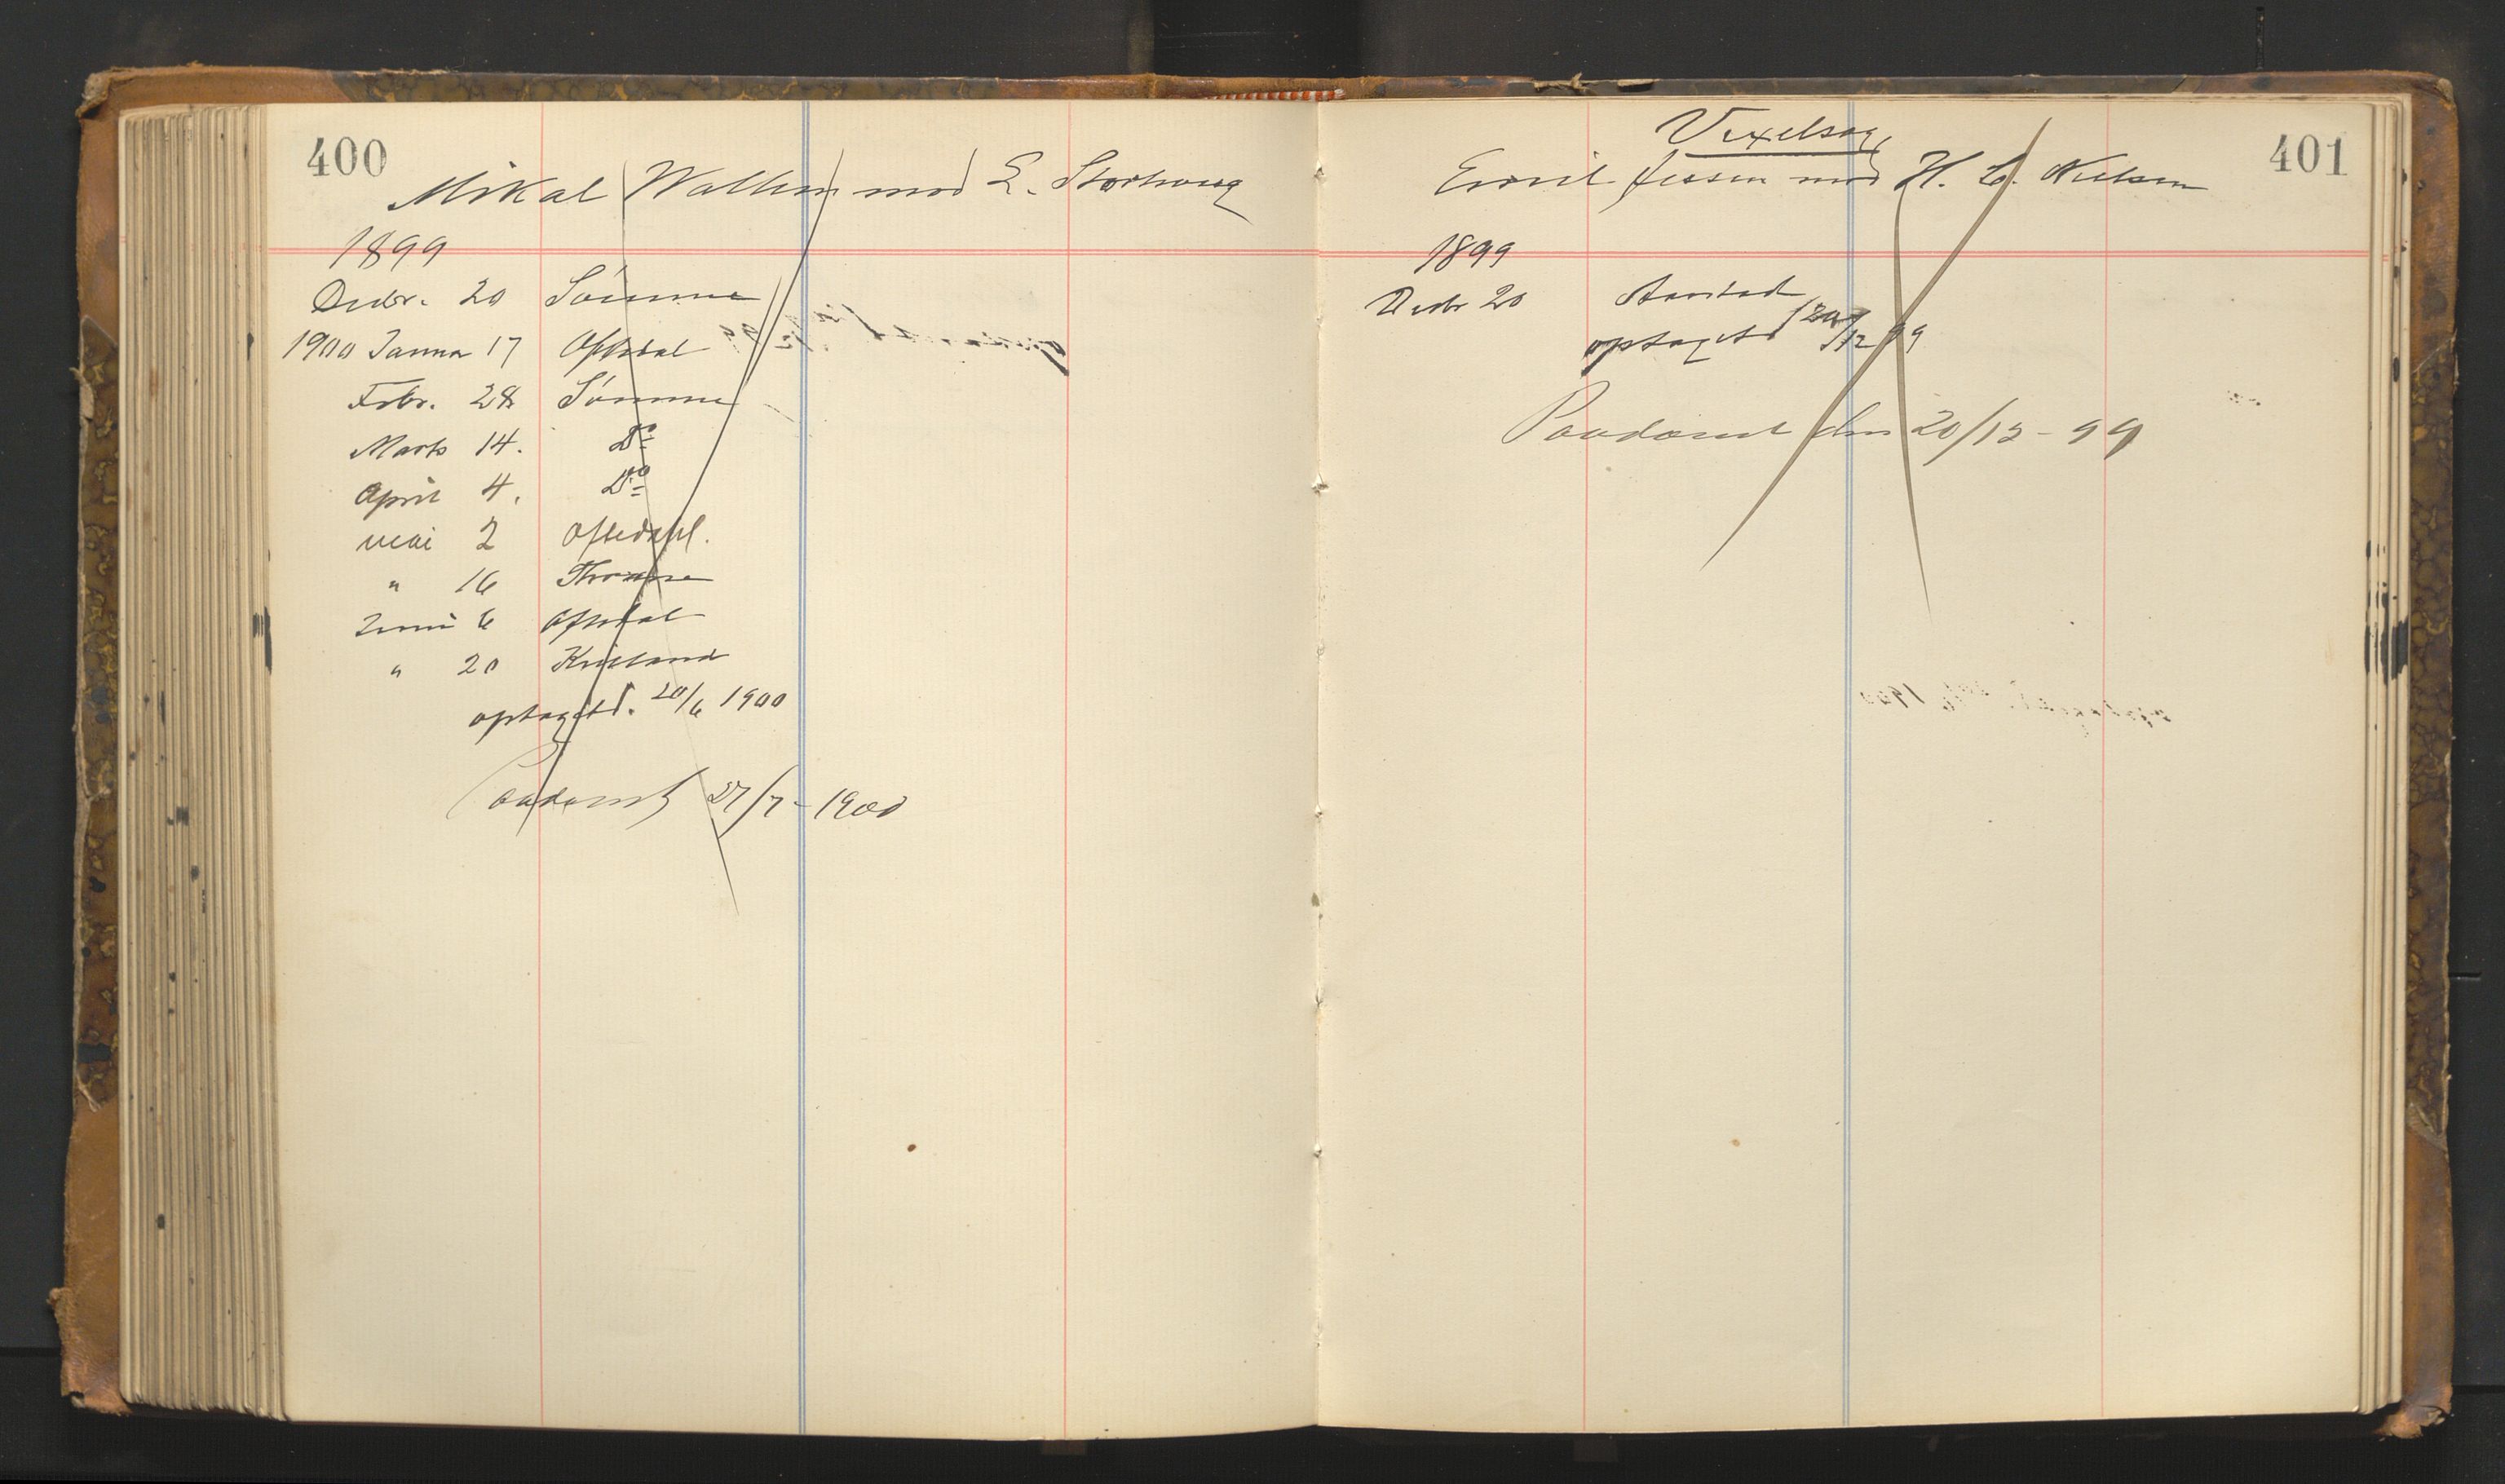 400
Mikal Wallem mod L. Storhoug
1899
Decbr. 20 Sømme
1900 Januar 17 Oftedal
Febr. 28 Sømme
Marts 14. Do
April 4. Do
Mai 2 Oftedahl.
" 16 Thorsen
Juni 6 Oftedal
" 20 Kielland
optaget d. 20/6 1900
Paadømt 27/7 - 1900
401
Vexelsag
Emil Jessen mod H. C. Nielsen
1899
Decbr 20 Aarstad
optaget d 20/12 99
Paadømt den 20/12 - 99